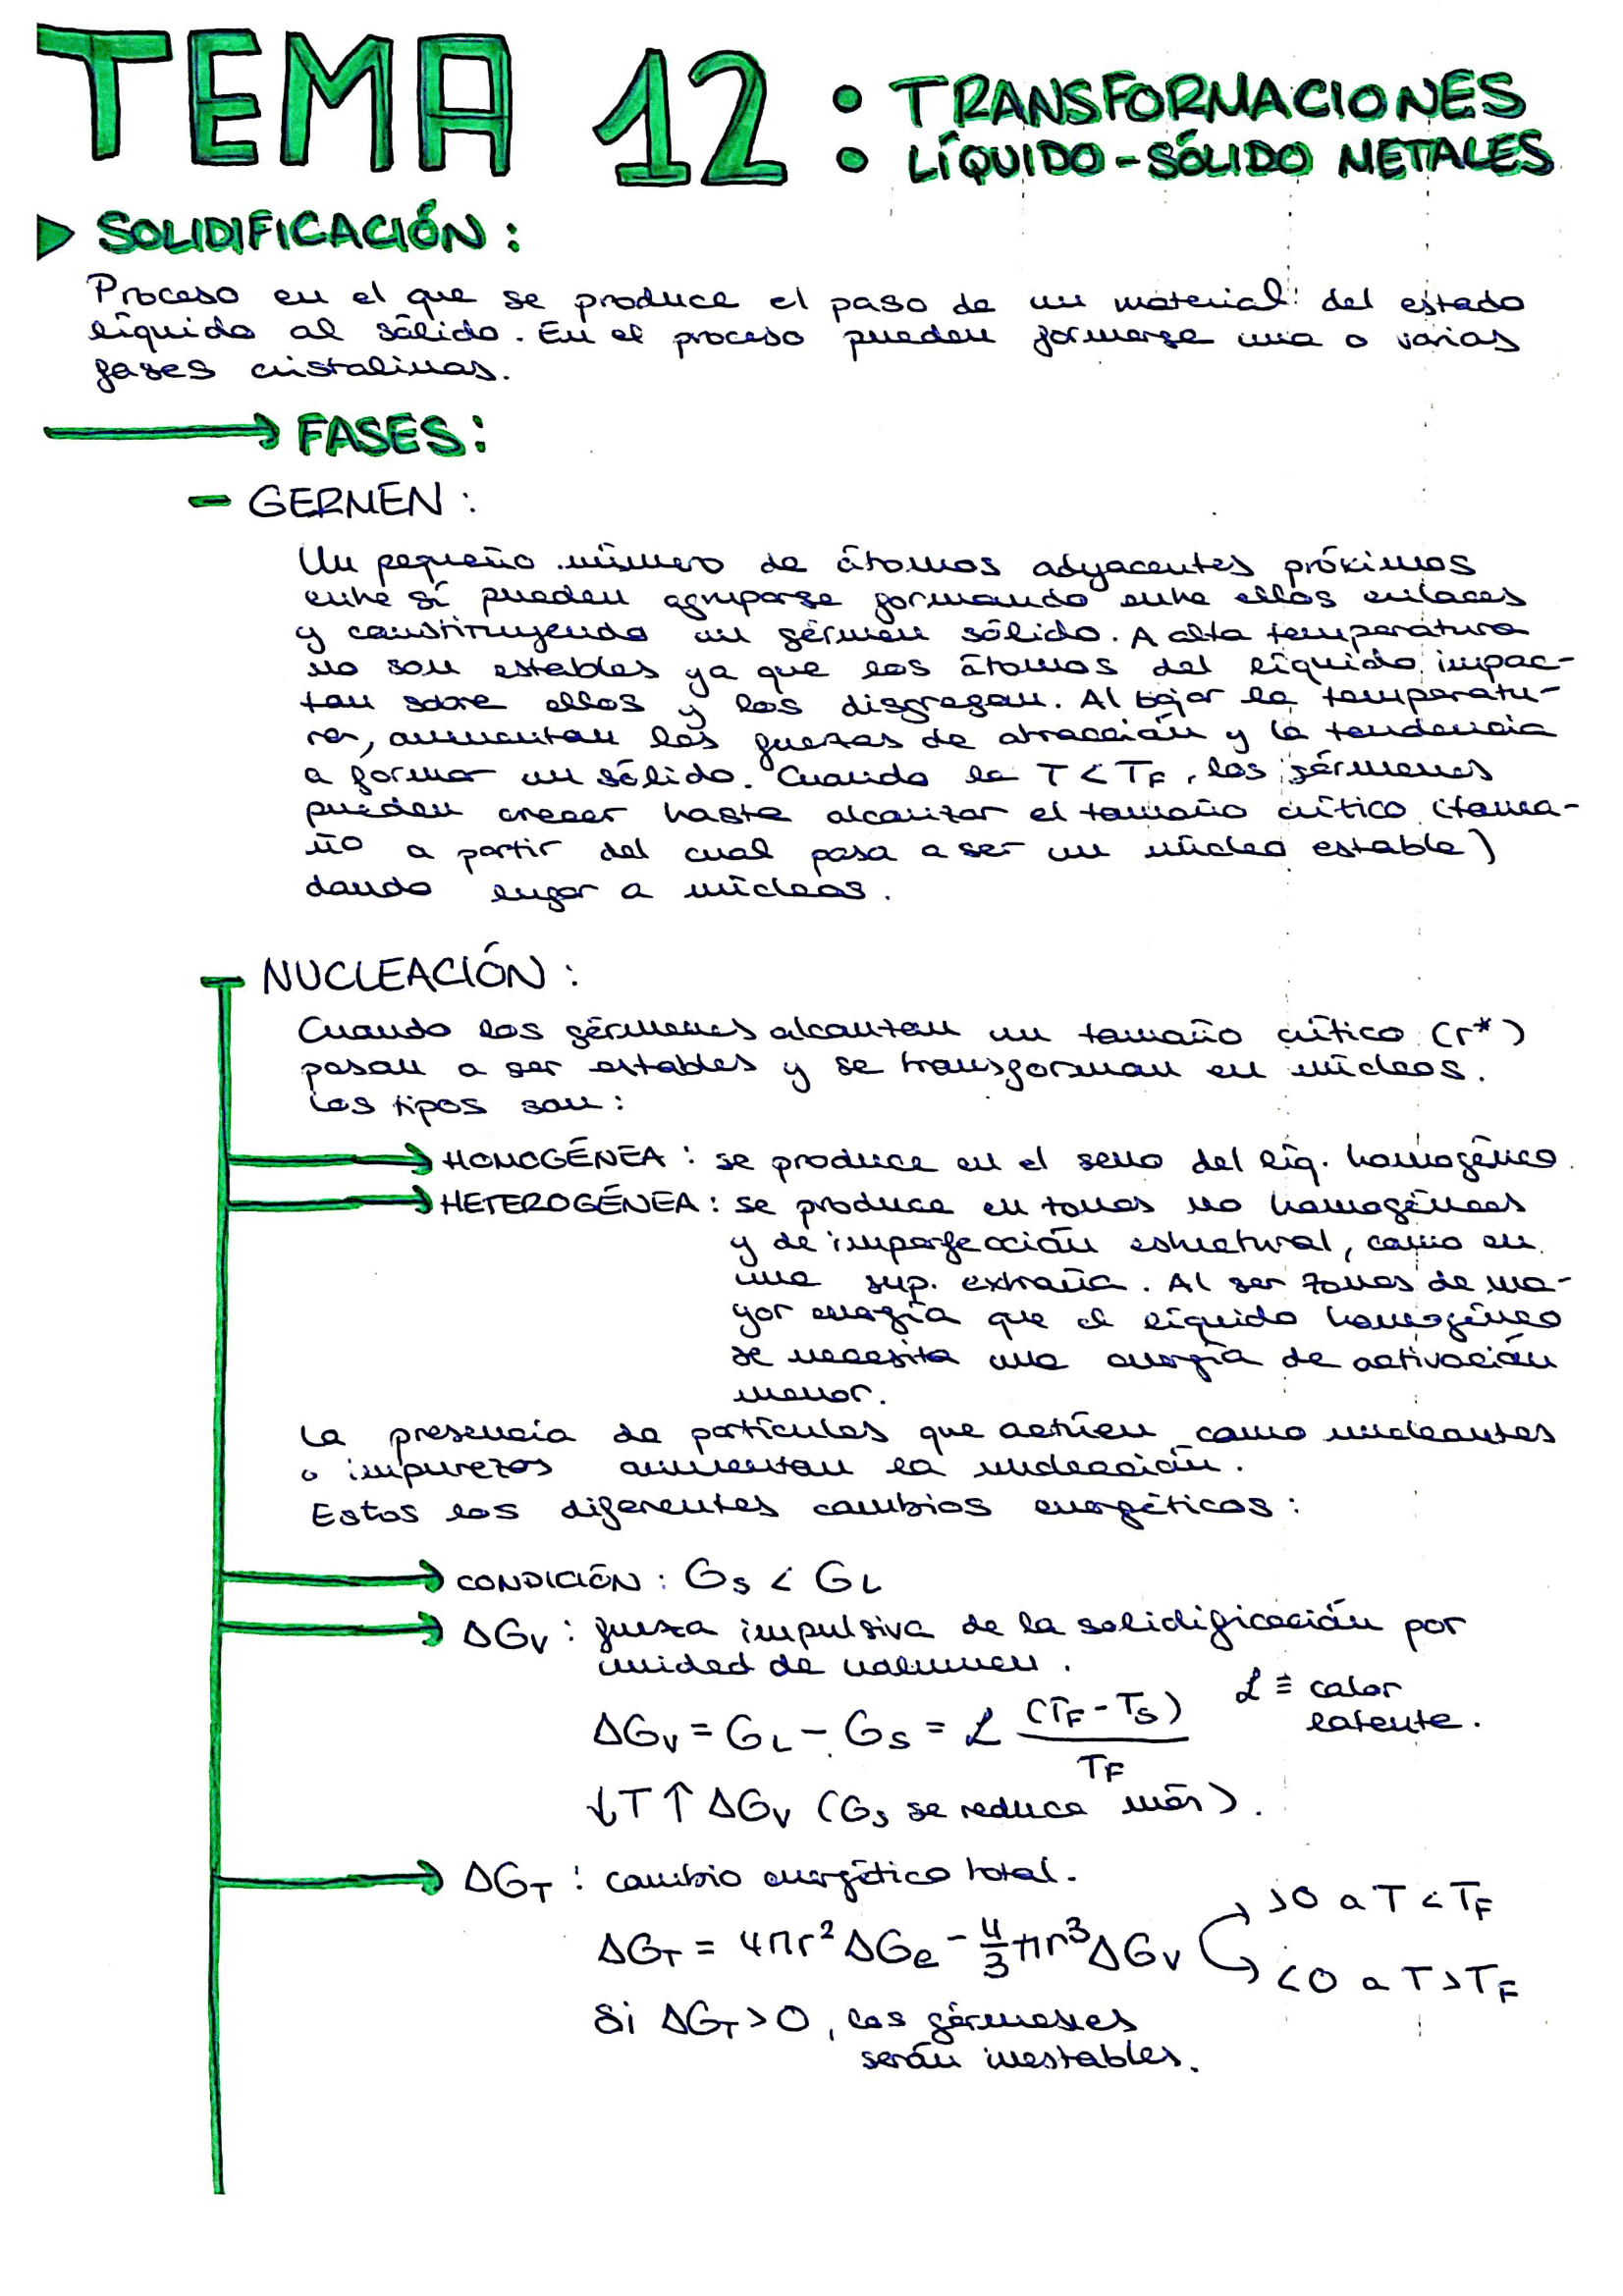 TEMA 12: TRANSFORMACIONES
LÍQUIDO-SÓLIDO METALES
SOLIDIFICACIÓN:
Proceso en el que se produce el paso de un material del estado
líquido al sólido. En el proceso pueden formarse una o varias
fases cristalinas.
FASES:
- GERMEN:
Un pequeño número de átomos adyacentes próximos
entre sí pueden agruparse formando entre ellos enlaces
y constituyendo un gérmen sólido. A alta temperatura
no son estables ya que los átomos del líquido impac-
tan sobre ellos y los disgregan. Al bajar la temperatu-
ra, aumentan las fuerzas de atracción y la tendencia
a formar un sólido. Cuando la T < TF, los gérmenes
pueden crecer hasta alcanzar el tamaño crítico (tama-
ño a partir del cual pasa a ser un núcleo estable)
dando lugar a núcleos.
NUCLEACIÓN:
Cuando los gérmenes alcanzan un tamaño crítico (r*)
pasan a ser estables y se transforman en núcleos.
Los tipos son:
HOMOGÉNEA: se produce en el seno del líq. homogénico.
HETEROGÉNEA: se produce en zonas no homogéneas
y de imperfección estructural, como en
una sup. extraña. Al ser zonas de ma-
yor energía que el líquido homogéneo
se necesita una energía de activación
menor.
La presencia de partículas que actúen como nucleantes
o impurezas aumentan la nucleación.
Estos los diferentes cambios energéticos:
CONDICIÓN: GS < GL
ΔGV: fuerza impulsiva de la solidificación por
unidad de volumen.
ΔGV = GL - GS = L (TF - TS) / TF    L ≡ calor
latente.
↓T ↑ ΔGV (GS se reduce más).
ΔGT: cambio energético total.
ΔGT = 4πr² ΔGe - 4/3 πr³ ΔGV    >0 a T < TF
<0 a T > TF
Si ΔGT > 0, los gérmenes
serán inestables.